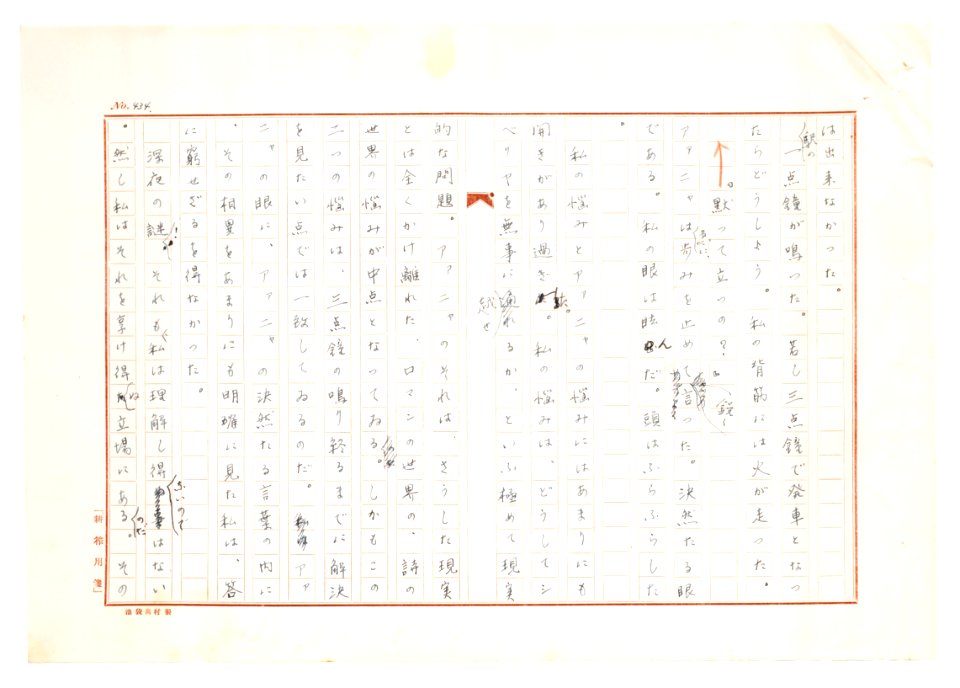 No. 434.
は出来なかった。
駅の一点鐘が鳴った。若し三点鐘で発車となっ
たらどうしよう。私の背筋には火が走った。
黙って立つの？
アァニャは歩みを止めて言った。決然たる眼
である。私の眼は眩んだ。頭はふらふらした
。
私の悩みとアァニャの悩みにはあまりにも
開きがあり過ぎた。私の悩みは、どうしてシ
ベリヤを無事に通れるか、といふ極めて現実
的な問題。アァニャのそれは、さうした現実
とは全くかけ離れた、ロマンの世界の、詩の
世界の悩みが中点となってゐる。しかもこの
二つの悩みは、三点鐘の鳴り終るまでに解決
を見たい点では一致してゐるのだ。アァ
ニャの眼に、アァニャの決然たる言葉の内に
、その相異をあまりにも明確に見た私は、答
に窮せざるを得なかった。
深夜の謎！それも私は理解し得ないのではない
。然し私はそれを享け得ぬ立場にある。その
「新𛀁用箋」